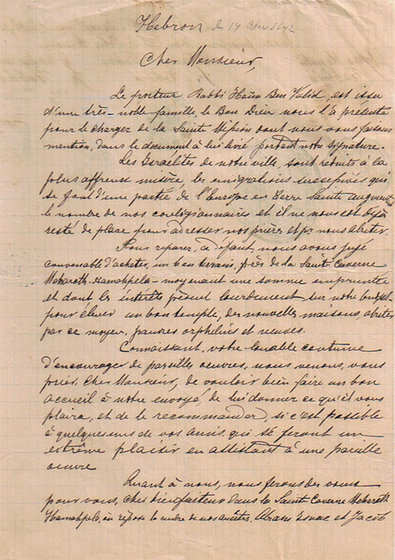 Hebron le 14
Cher Monsieur,
Le porteur Rabbi Haim Ben Valid, est issu
d'une très-noble famille, le Bon Dieu nous l'a présenté
pour le charger de la Sainte Mission dont nous vous faisons
mention, dans le document à lui livré portant notre signature.
Les Israélites de notre ville sont réduits à la
plus affreuse misère les émigrations successives qui
se font d'une partie de l'Europe en Terre Sainte augmente
le nombre de nos coreligionnaires et il ne nous est déjà
resté de place pour adresser nos prières et nous abriter.
Pour réparer, à défaut, nous avons jugé
convenable d'acheter, un bon terrain, près de la Sainte Caverne
Meharath-Hamahpela - moyennant une somme empruntée
et dont les intérêts pèsent lourdement sur notre budget
pour élever un bon temple, des nouvelles maisons, abriter
par ce moyen, pauvres orphelins et veuves.
Connaissant, votre louable coutume
d'encourager de pareilles œuvres, nous venons, vous
prier, Cher Monsieur, de vouloir bien faire un bon
accueil à notre envoyé, de lui donner ce qu'il vous
plaira, et de le recommander si c'est possible
à quelques uns de vos amis, qui se feront un
extrême plaisir en assistant à une pareille
œuvre
Quant à nous, nous ferons des vœux
pour vous, cher bienfaiteur dans la Sainte Caverne Meharath
Hamahpela, où repose la cendre de nos ancêtres, Abram Isaac et Jacob